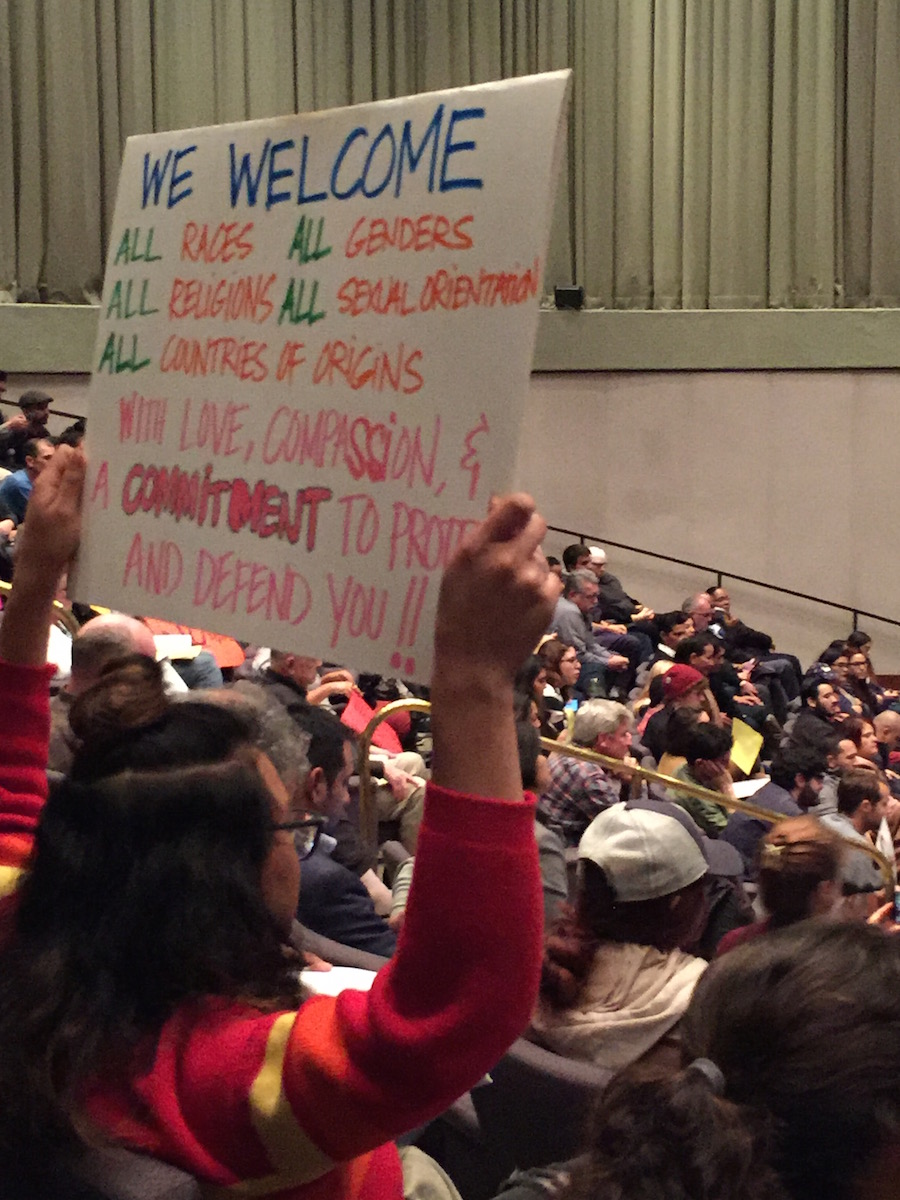 WE WELCOME
ALL RACES ALL GENDERS
ALL RELIGIONS ALL SEXUAL ORIENTATION
ALL COUNTRIES OF ORIGINS
WITH LOVE, COMPASSION, &
A COMMITMENT TO PROTE
AND DEFEND YOU !!